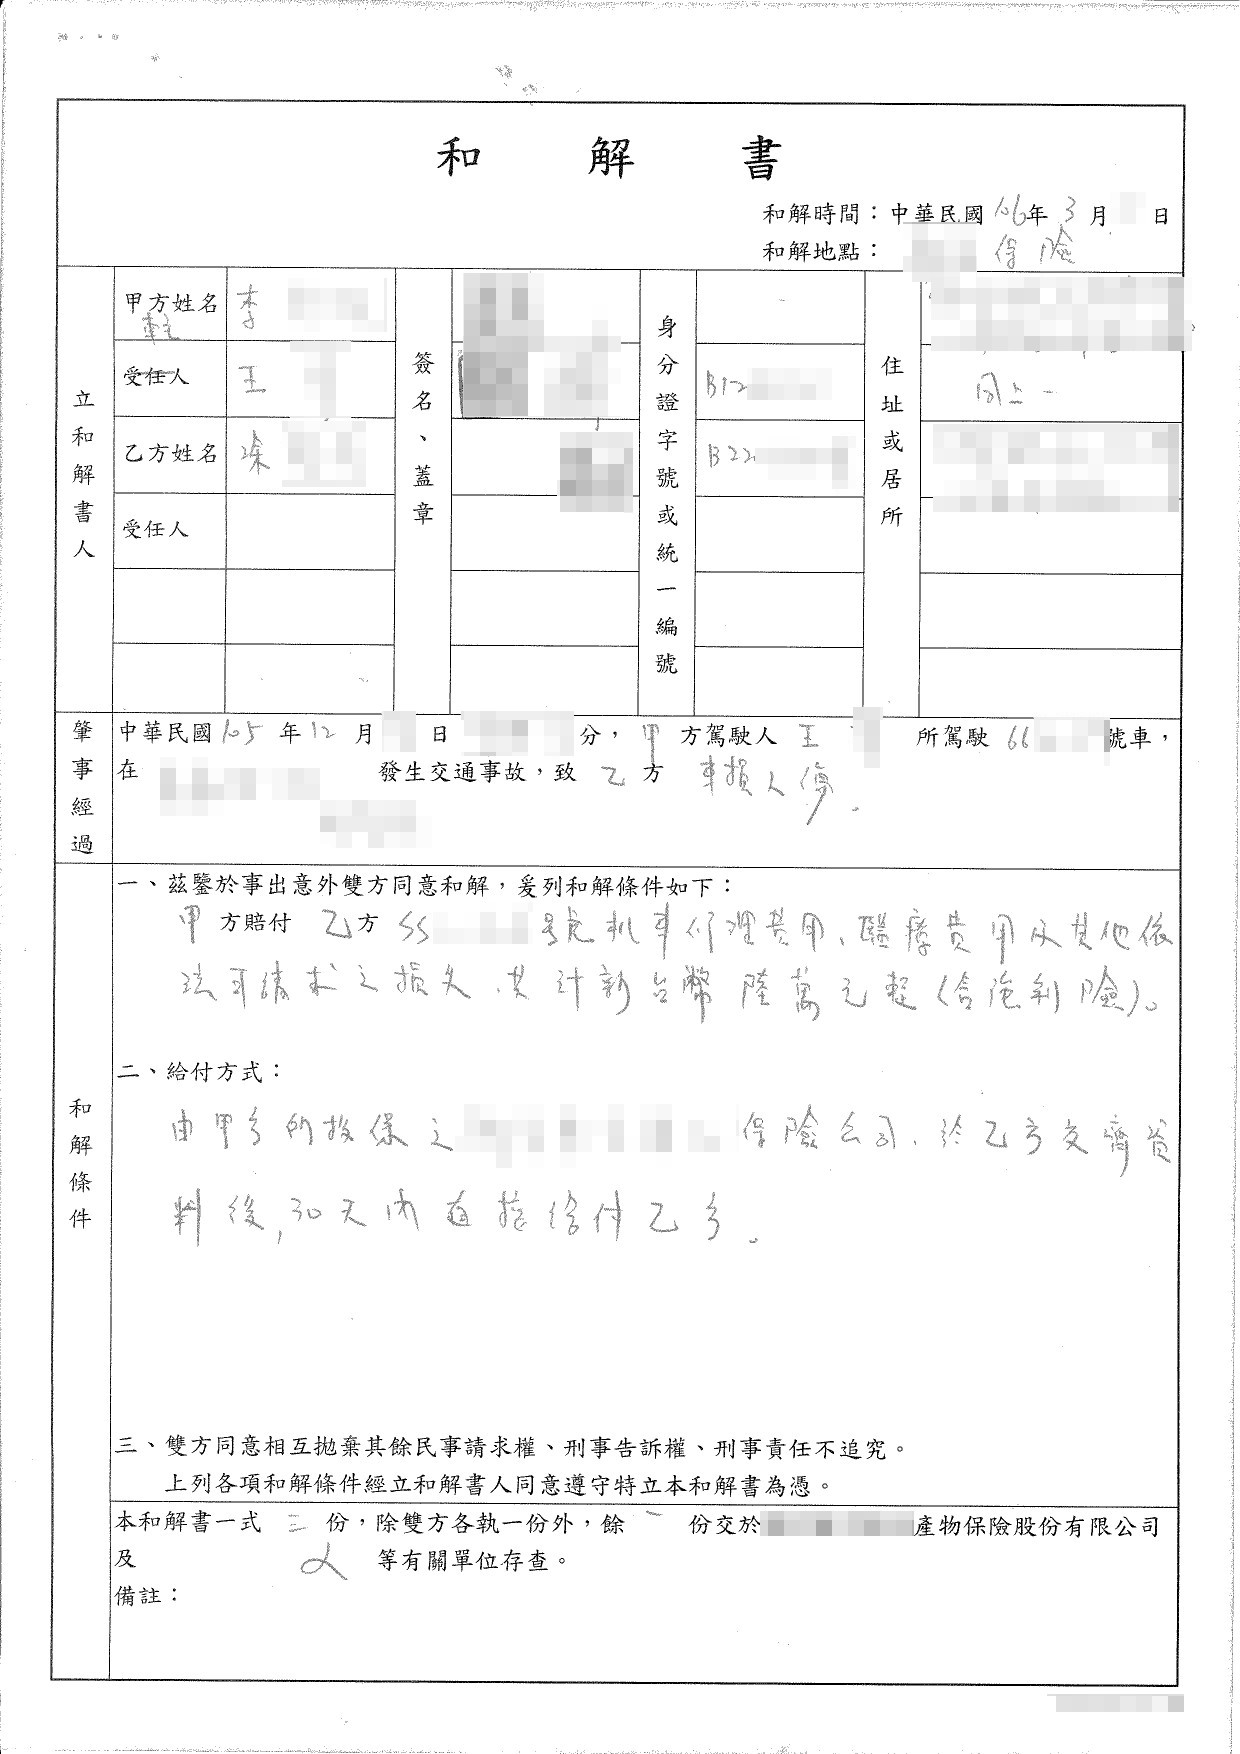 和解書
和解時間：中華民國106年3月 日
和解地點： 保險
立和解書人
甲方姓名
車主
李
受任人
王
乙方姓名
受任人
簽名、蓋章
身分證字號或統一編號
B12
B22
住址或居所
同上
肇事經過
中華民國105年12月 日 分，甲方駕駛人王 所駕駛66 號車，
在 發生交通事故，致乙方 車損人傷.
和解條件
一、茲鑒於事出意外雙方同意和解，爰列和解條件如下：
甲方賠付乙方 號机車修理費用、醫療費用及其他依
法可請求之損失，共計新台幣陸萬元整(含強制險)。
二、給付方式：
由甲方所投保之 保險公司，於乙方交齊資
料後,30天內直接給付乙方。
三、雙方同意相互拋棄其餘民事請求權、刑事告訴權、刑事責任不追究。
上列各項和解條件經立和解書人同意遵守特立本和解書為憑。
本和解書一式三份，除雙方各執一份外，餘一份交於 產物保險股份有限公司
及 等有關單位存查。
備註：